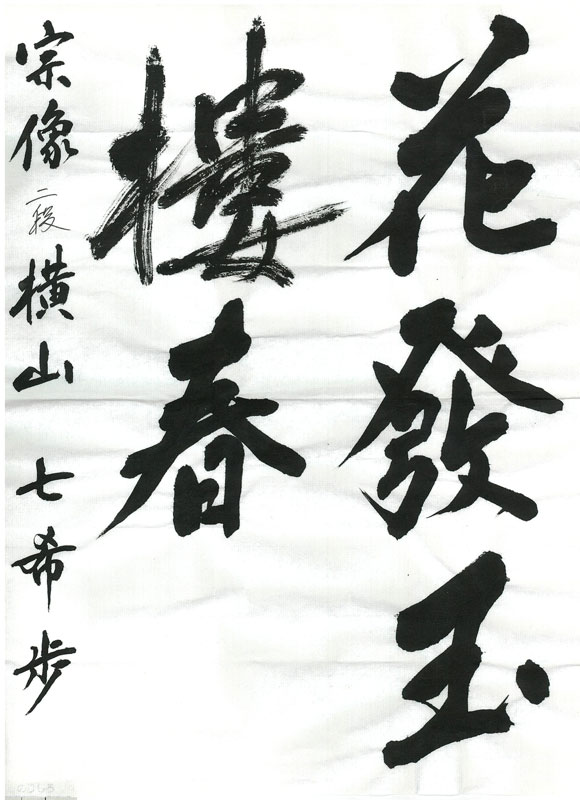 花發玉
樓春
宗像 二段 横山 七希歩